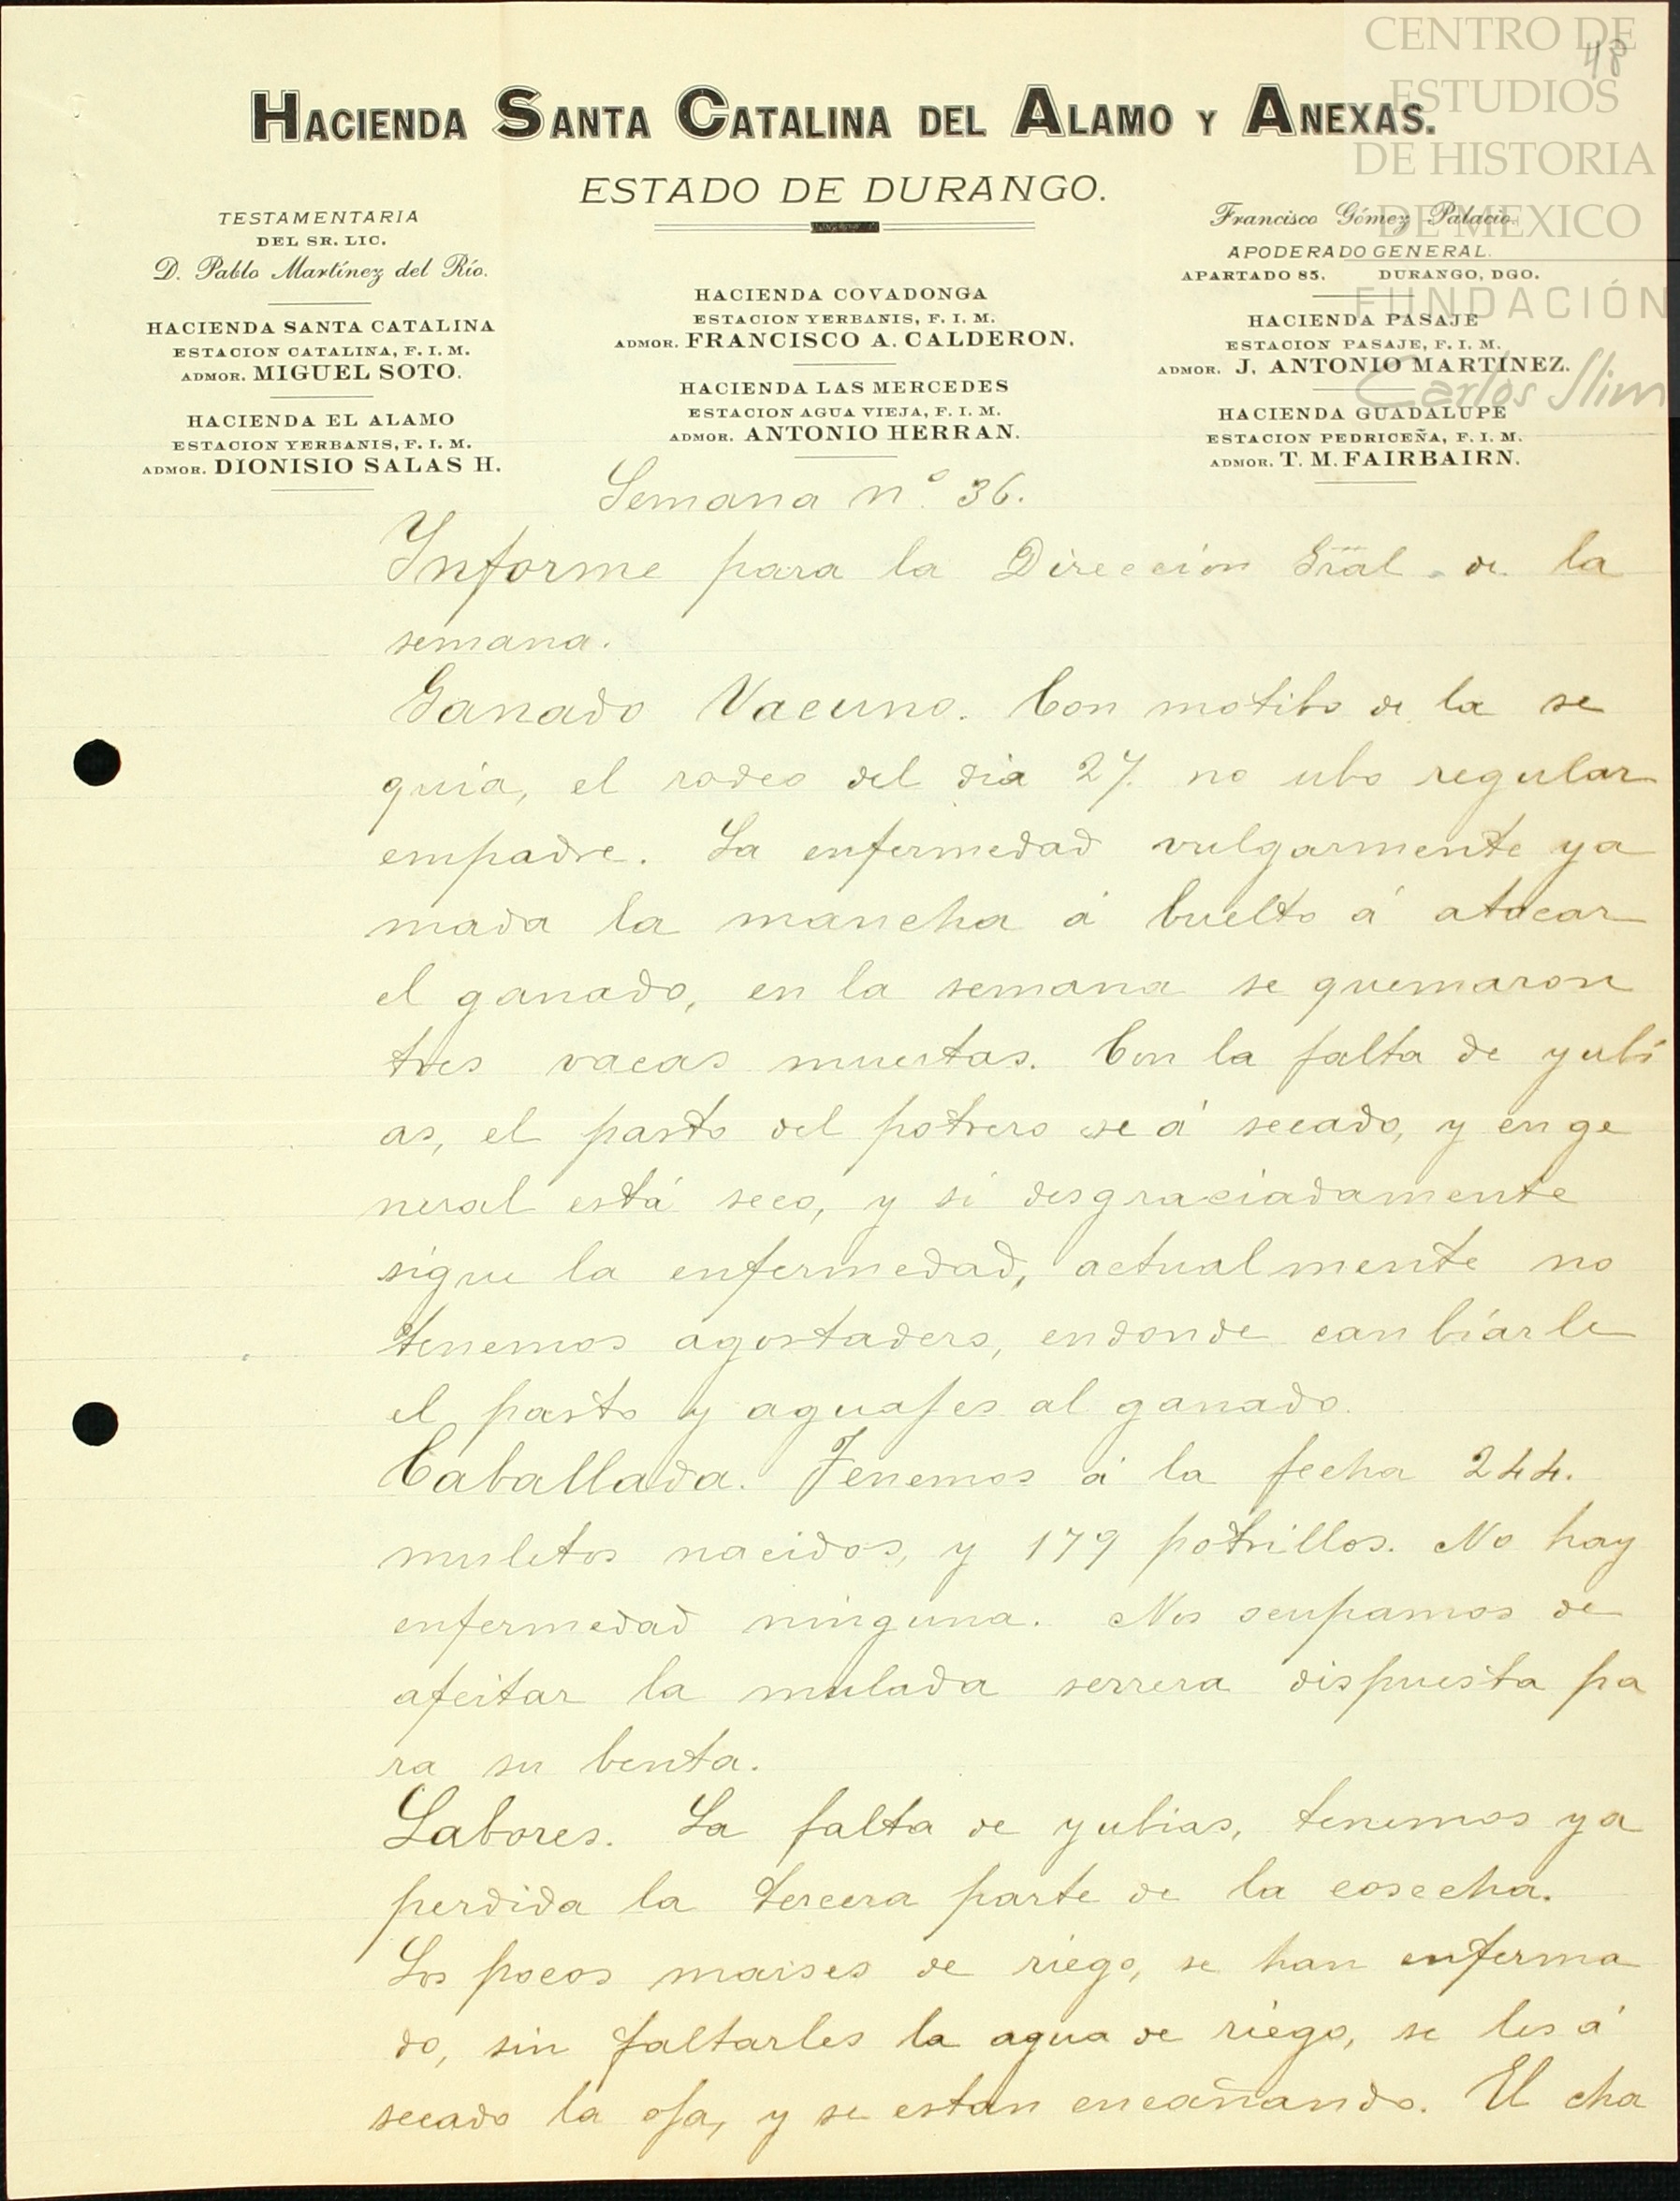 CENTRO DE
ESTUDIOS
DE HISTORIA
DE MEXICO
FUNDACIÓN
Carlos Slim
48
HACIENDA SANTA CATALINA DEL ALAMO Y ANEXAS.
ESTADO DE DURANGO.
TESTAMENTARIA
DEL SR. LIC.
D. Pablo Martínez del Río.
HACIENDA SANTA CATALINA
ESTACION CATALINA, F. I. M.
ADMOR. MIGUEL SOTO.
HACIENDA EL ALAMO
ESTACION YERBANIS, F. I. M.
ADMOR. DIONISIO SALAS H.
HACIENDA COVADONGA
ESTACION YERBANIS, F. I. M.
ADMOR. FRANCISCO A. CALDERON.
HACIENDA LAS MERCEDES
ESTACION AGUA VIEJA, F. I. M.
ADMOR. ANTONIO HERRAN.
Francisco Gómez Palacio.
APODERADO GENERAL.
APARTADO 85. DURANGO, DGO.
HACIENDA PASAJE
ESTACION PASAJE, F. I. M.
ADMOR. J. ANTONIO MARTINEZ.
HACIENDA GUADALUPE
ESTACION PEDRICEÑA, F. I. M.
ADMOR. T. M. FAIRBAIRN.
Semana nº 36.
Informe para la Dirección Gral. de la
semana.
Ganado Vacuno. Con motibo de la se
quia, el rodeo del dia 27. no ubo regular
empadre. La enfermedad vulgarmente ya
mada la mancha á buelto á atacar
el ganado, en la semana se quemaron
tres vacas muertas. Con la falta de yubi
as, el pasto del potrero se á secado, y en ge
neral está seco, y si desgraciadamente
sigue la enfermedad, actualmente no
tenemos agostadero, endonde canbiarle
el pasto y aguajes al ganado.
Caballada. Tenemos á la fecha 244.
muletos nacidos, y 179 potrillos. No hay
enfermedad ninguna. Nos ocupamos de
afeitar la mulada serrera dispuesta pa
ra su benta.
Labores. La falta de yubias, tenemos ya
perdida la tercera parte de la cosecha.
Los pocos maises de riego, se han enferma
do, sin faltarles la agua de riego, se les á
secado la oja, y se estan encañando. El cha